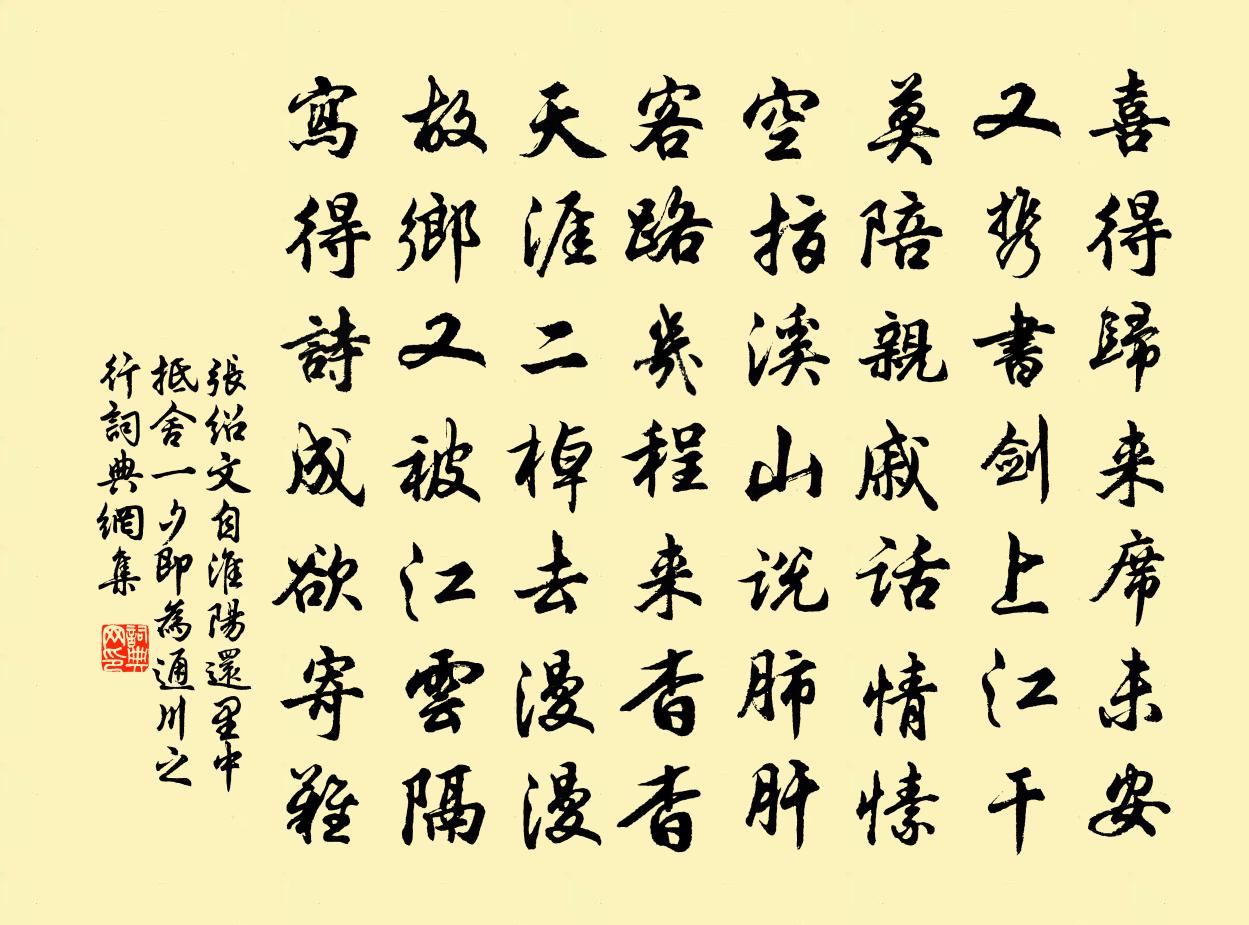 喜得歸来席未安
又携書剑上江干
莫陪親戚话情愫
空指溪山说肺肝
客路幾程来杳杳
天涯二棹去漫漫
故鄉又被江雲隔
寫得詩成欲寄難
張绍文自淮陽還里中
抵舍一夕即為通川之
行詞典網集
詞典
网印